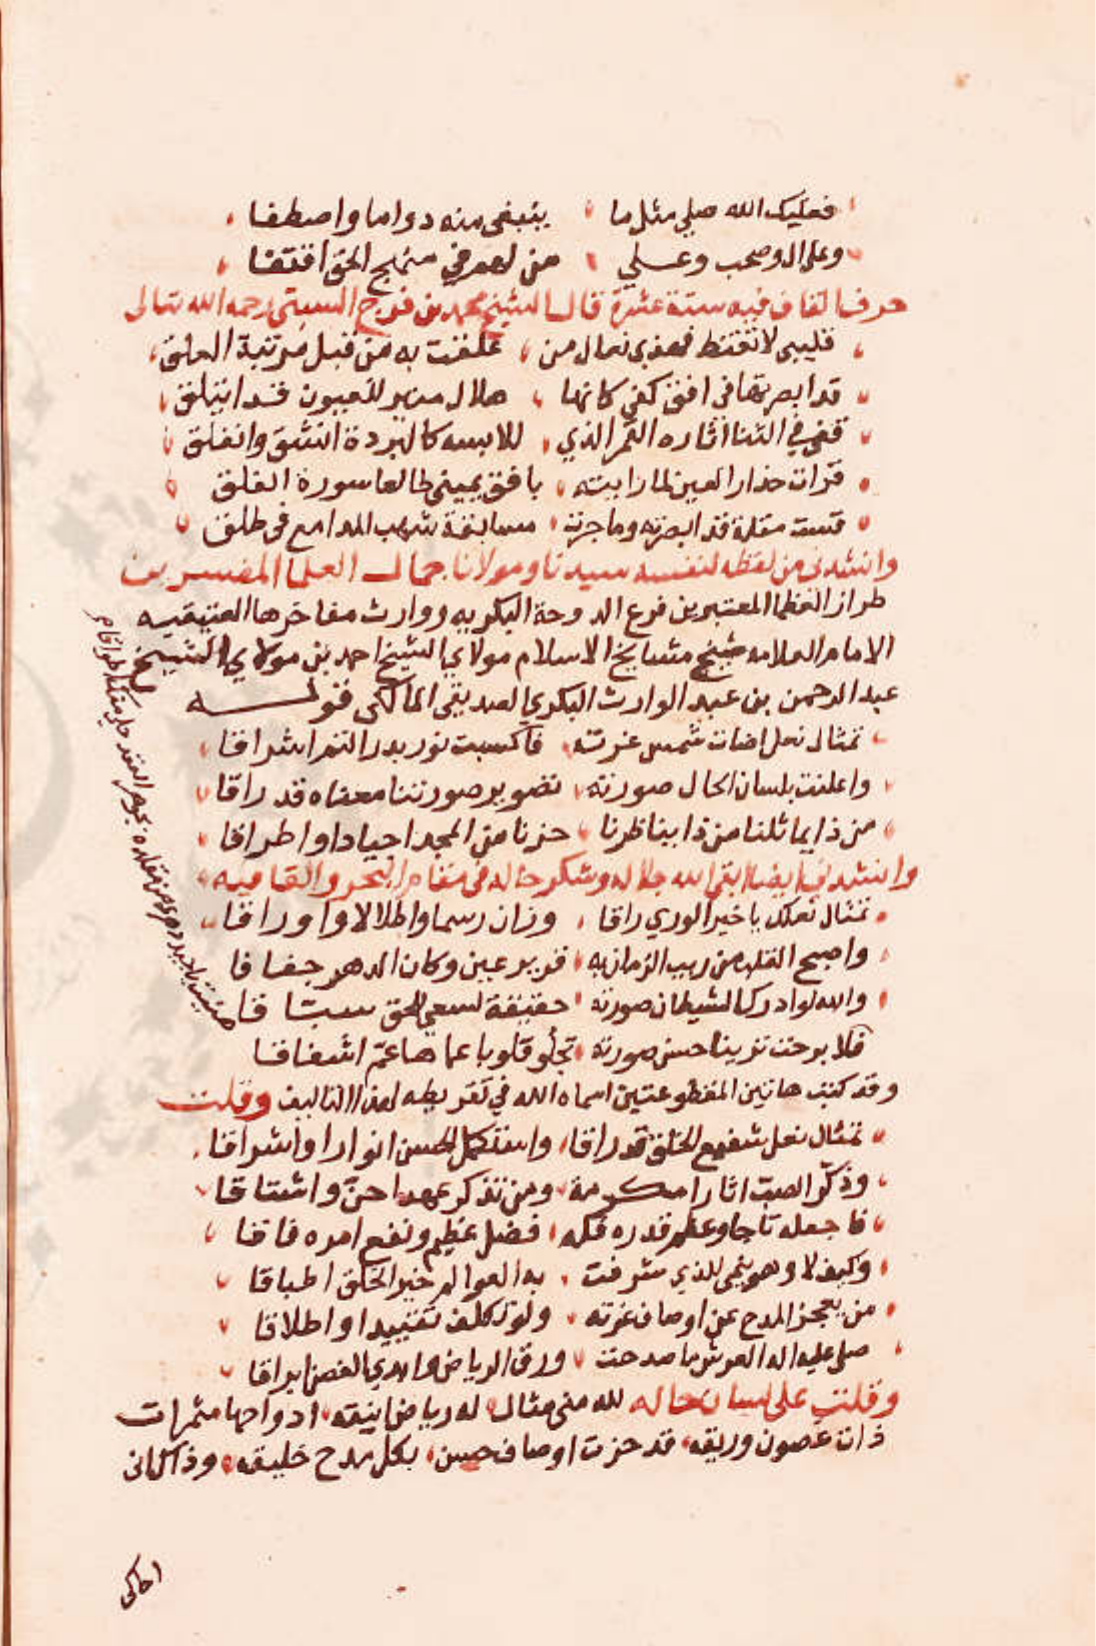 فعليك الله صلى مثل ما ينبغي منه دواما واصطفا
وعلى ال وصحب وعلي من لهم في منهج الحق اقتفا
حرف القاف فيه ستة عشرة قال الشيخ محمد بن فرج السبتي رحمه الله تعالى
قليبي لا تقنط فهذي نعال من علقت به من قبل مرتبة العلق
قد ابصرتها في افق كفي كانها هلال منير للعيون قد ائتلق
قفي في الثنا اثاره القمر الذي للابسه كالبردة انشق وانفلق
قرات حذار العين لما رايته بافق يميني طالعا سورة الفلق
قست مقلة قد ابصرته وما جرت مسابقة شهب المدامع في طلق
وانشدني من لفظه لنفسه سيدنا ومولانا جمال العلما المفسرين
طراز العظما المعتبرين فرع الدوحة البكريه ووارث مفاخرها العتيقيه
الامام العلامه شيخ مشايخ الاسلام مولاي الشيخ احمد بن مولاي الشيخ
عبد الرحمن بن عبد الوارث البكري الصديقي المالكي قوله
تمثال نعل اضات شمس غرته فاكسبت نور بدر التم اشراقا
واعلنت بلسان الحال صورته تصوير صورتنا معناه قد راقا
من ذا يماثلنا من ذا يناظرنا حزنا من المجد اجيادا واطراقا
وانشدني ايضا ابقى الله جلاله وشكر حاله في مقام البحر والقافيه
تمثال نعلك يا خير الورى راقا وزان رسما واطلالا واوراقا
واصبح القلب من ريب الزمان به قرير عين وكان الدهر خفاقا
والله لو ادرك الشيطان صورته حقيقة لسعى للحق سباقا
فلا برحت ترينا حسن صورته تجلو قلوبا عما هاعم اشفاقا
وقد كتب هاتين المقطوعتين اسماه الله في تقريظه لهذا التاليف وقلت
تمثال نعل شفيع الخلق قد راقا واستكمل الحسن انوارا واشراقا
وذكر الصب اثارا مكرمة ومن تذكر عهدا حن واشتاقا
فاجعله تاجا وعظم قدره فله فضل عظيم ونفع امره فاقا
وكيف لا وهو ينمى للذي شرفت به العوالم خير الخلق اطباقا
من يعجز المدح عن اوصاف غرته ولو تكلف تقييدا واطلاقا
صلى عليه اله العرش ما صدحت ورق الرياض واهدى الغصن ايراقا
وقلت على لسان حاله لله منى مثال له رياض انيقه ادواحها مثمرات
ذات غصون وريقه قد حزت اوصاف حسن بكل مدح خليقه وذاك اني
احاكي